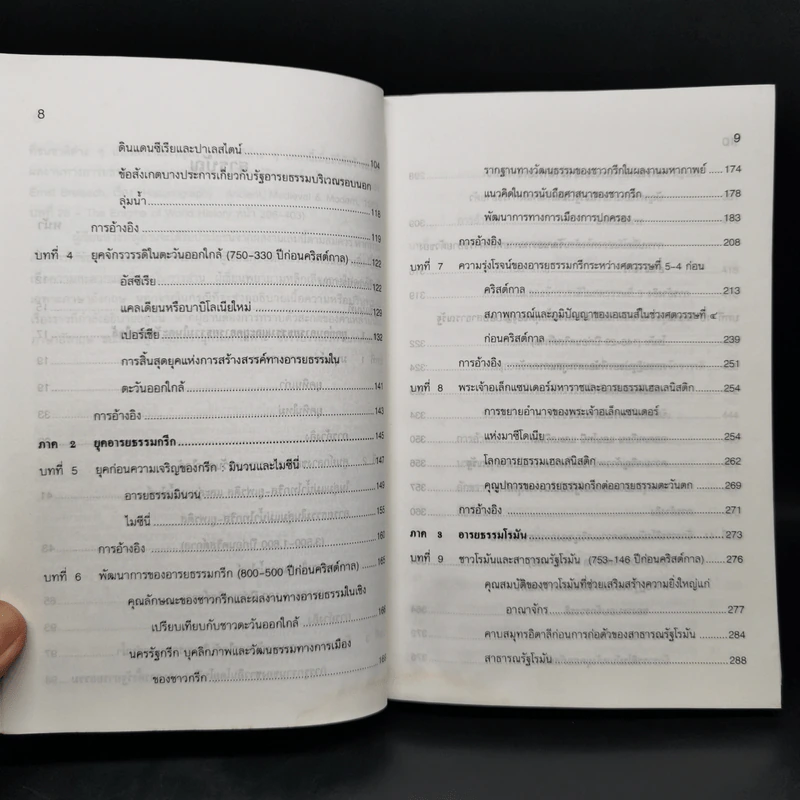 8
ดินแดนซีเรียและปาเลสไตน์ 104
ข้อสังเกตบางประการเกี่ยวกับรัฐอารยธรรมบริเวณรอบนอก
ลุ่มน้ำ 118
การอ้างอิง 119
บทที่ 4 ยุคจักรวรรดิในตะวันออกใกล้ (750-330 ปีก่อนคริสต์กาล) 122
อัสซีเรีย 122
แคลเดียนหรือบาบิโลเนียใหม่ 129
เปอร์เซีย 132
การสิ้นสุดยุคแห่งการสร้างสรรค์ทางอารยธรรมใน
ตะวันออกใกล้ 141
การอ้างอิง 143
ภาค 2 ยุคอารยธรรมกรีก 145
บทที่ 5 ยุคก่อนความเจริญของกรีก : มินวนและไมซีนี 147
อารยธรรมมินวน 149
ไมซีนี 155
การอ้างอิง 160
บทที่ 6 พัฒนาการของอารยธรรมกรีก (800-500 ปีก่อนคริสต์กาล) 165
คุณลักษณะของชาวกรีกและผลงานทางอารยธรรมในเชิง
เปรียบเทียบกับชาวตะวันออกใกล้ 166
นครรัฐกรีก บุคลิกภาพและวัฒนธรรมทางการเมือง
ของชาวกรีก 169
9
รากฐานทางวัฒนธรรมของชาวกรีกในผลงานมหากาพย์ 174
แนวคิดในการนับถือศาสนาของชาวกรีก 178
พัฒนาการทางการเมืองการปกครอง 183
การอ้างอิง 208
บทที่ 7 ความรุ่งโรจน์ของอารยธรรมกรีกระหว่างศตวรรษที่ 5-4 ก่อน
คริสต์กาล 213
สภาพการณ์และภูมิปัญญาของเอเธนส์ในช่วงศตวรรษที่ ๔
ก่อนคริสต์กาล 239
การอ้างอิง 251
บทที่ 8 พระเจ้าอเล็กแซนเดอร์มหาราชและอารยธรรมเฮลเลนิสติก 254
การขยายอำนาจของพระเจ้าอเล็กแซนเดอร์
แห่งมาซิโดเนีย 254
โลกอารยธรรมเฮลเลนิสติก 262
คุณูปการของอารยธรรมกรีกต่ออารยธรรมตะวันตก 269
การอ้างอิง 271
ภาค 3 อารยธรรมโรมัน 273
บทที่ 9 ชาวโรมันและสาธารณรัฐโรมัน (753-146 ปีก่อนคริสต์กาล) 276
คุณสมบัติของชาวโรมันที่ช่วยเสริมสร้างความยิ่งใหญ่แก่
อาณาจักร 277
คาบสมุทรอิตาลีก่อนการก่อตัวของสาธารณรัฐโรมัน 284
สาธารณรัฐโรมัน 288